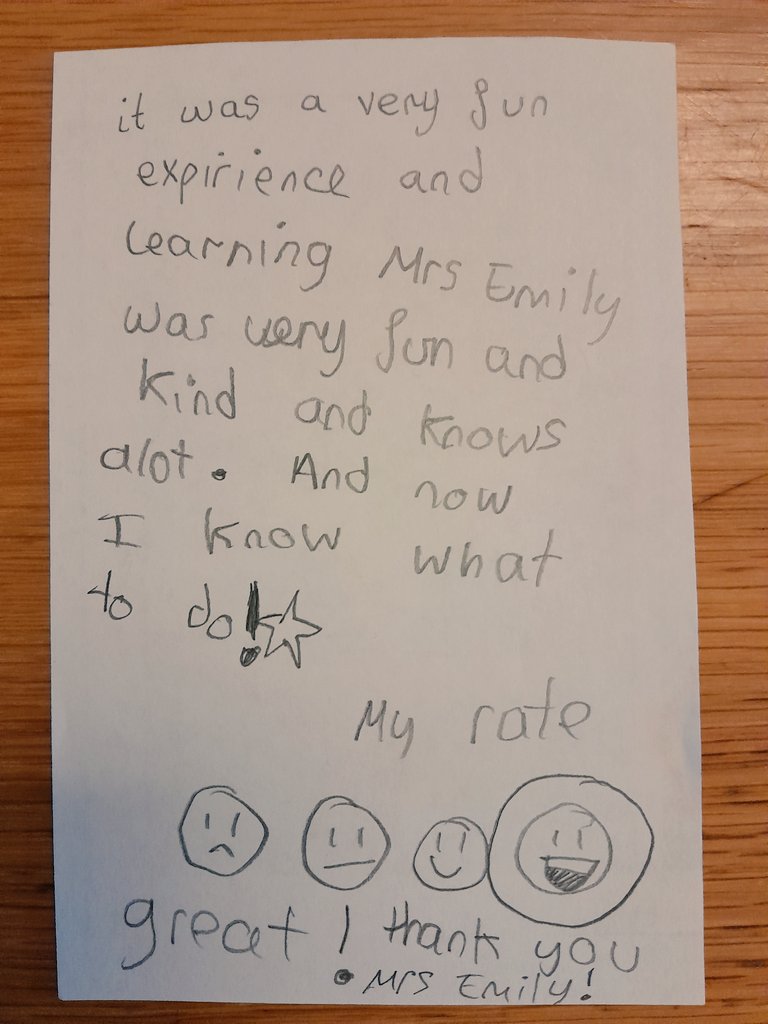 it was a very fun
expirience and
learning Mrs Emily
was very fun and
kind and knows
alot. And now
I know what
to do!
My rate
great! thank you
Mrs Emily!